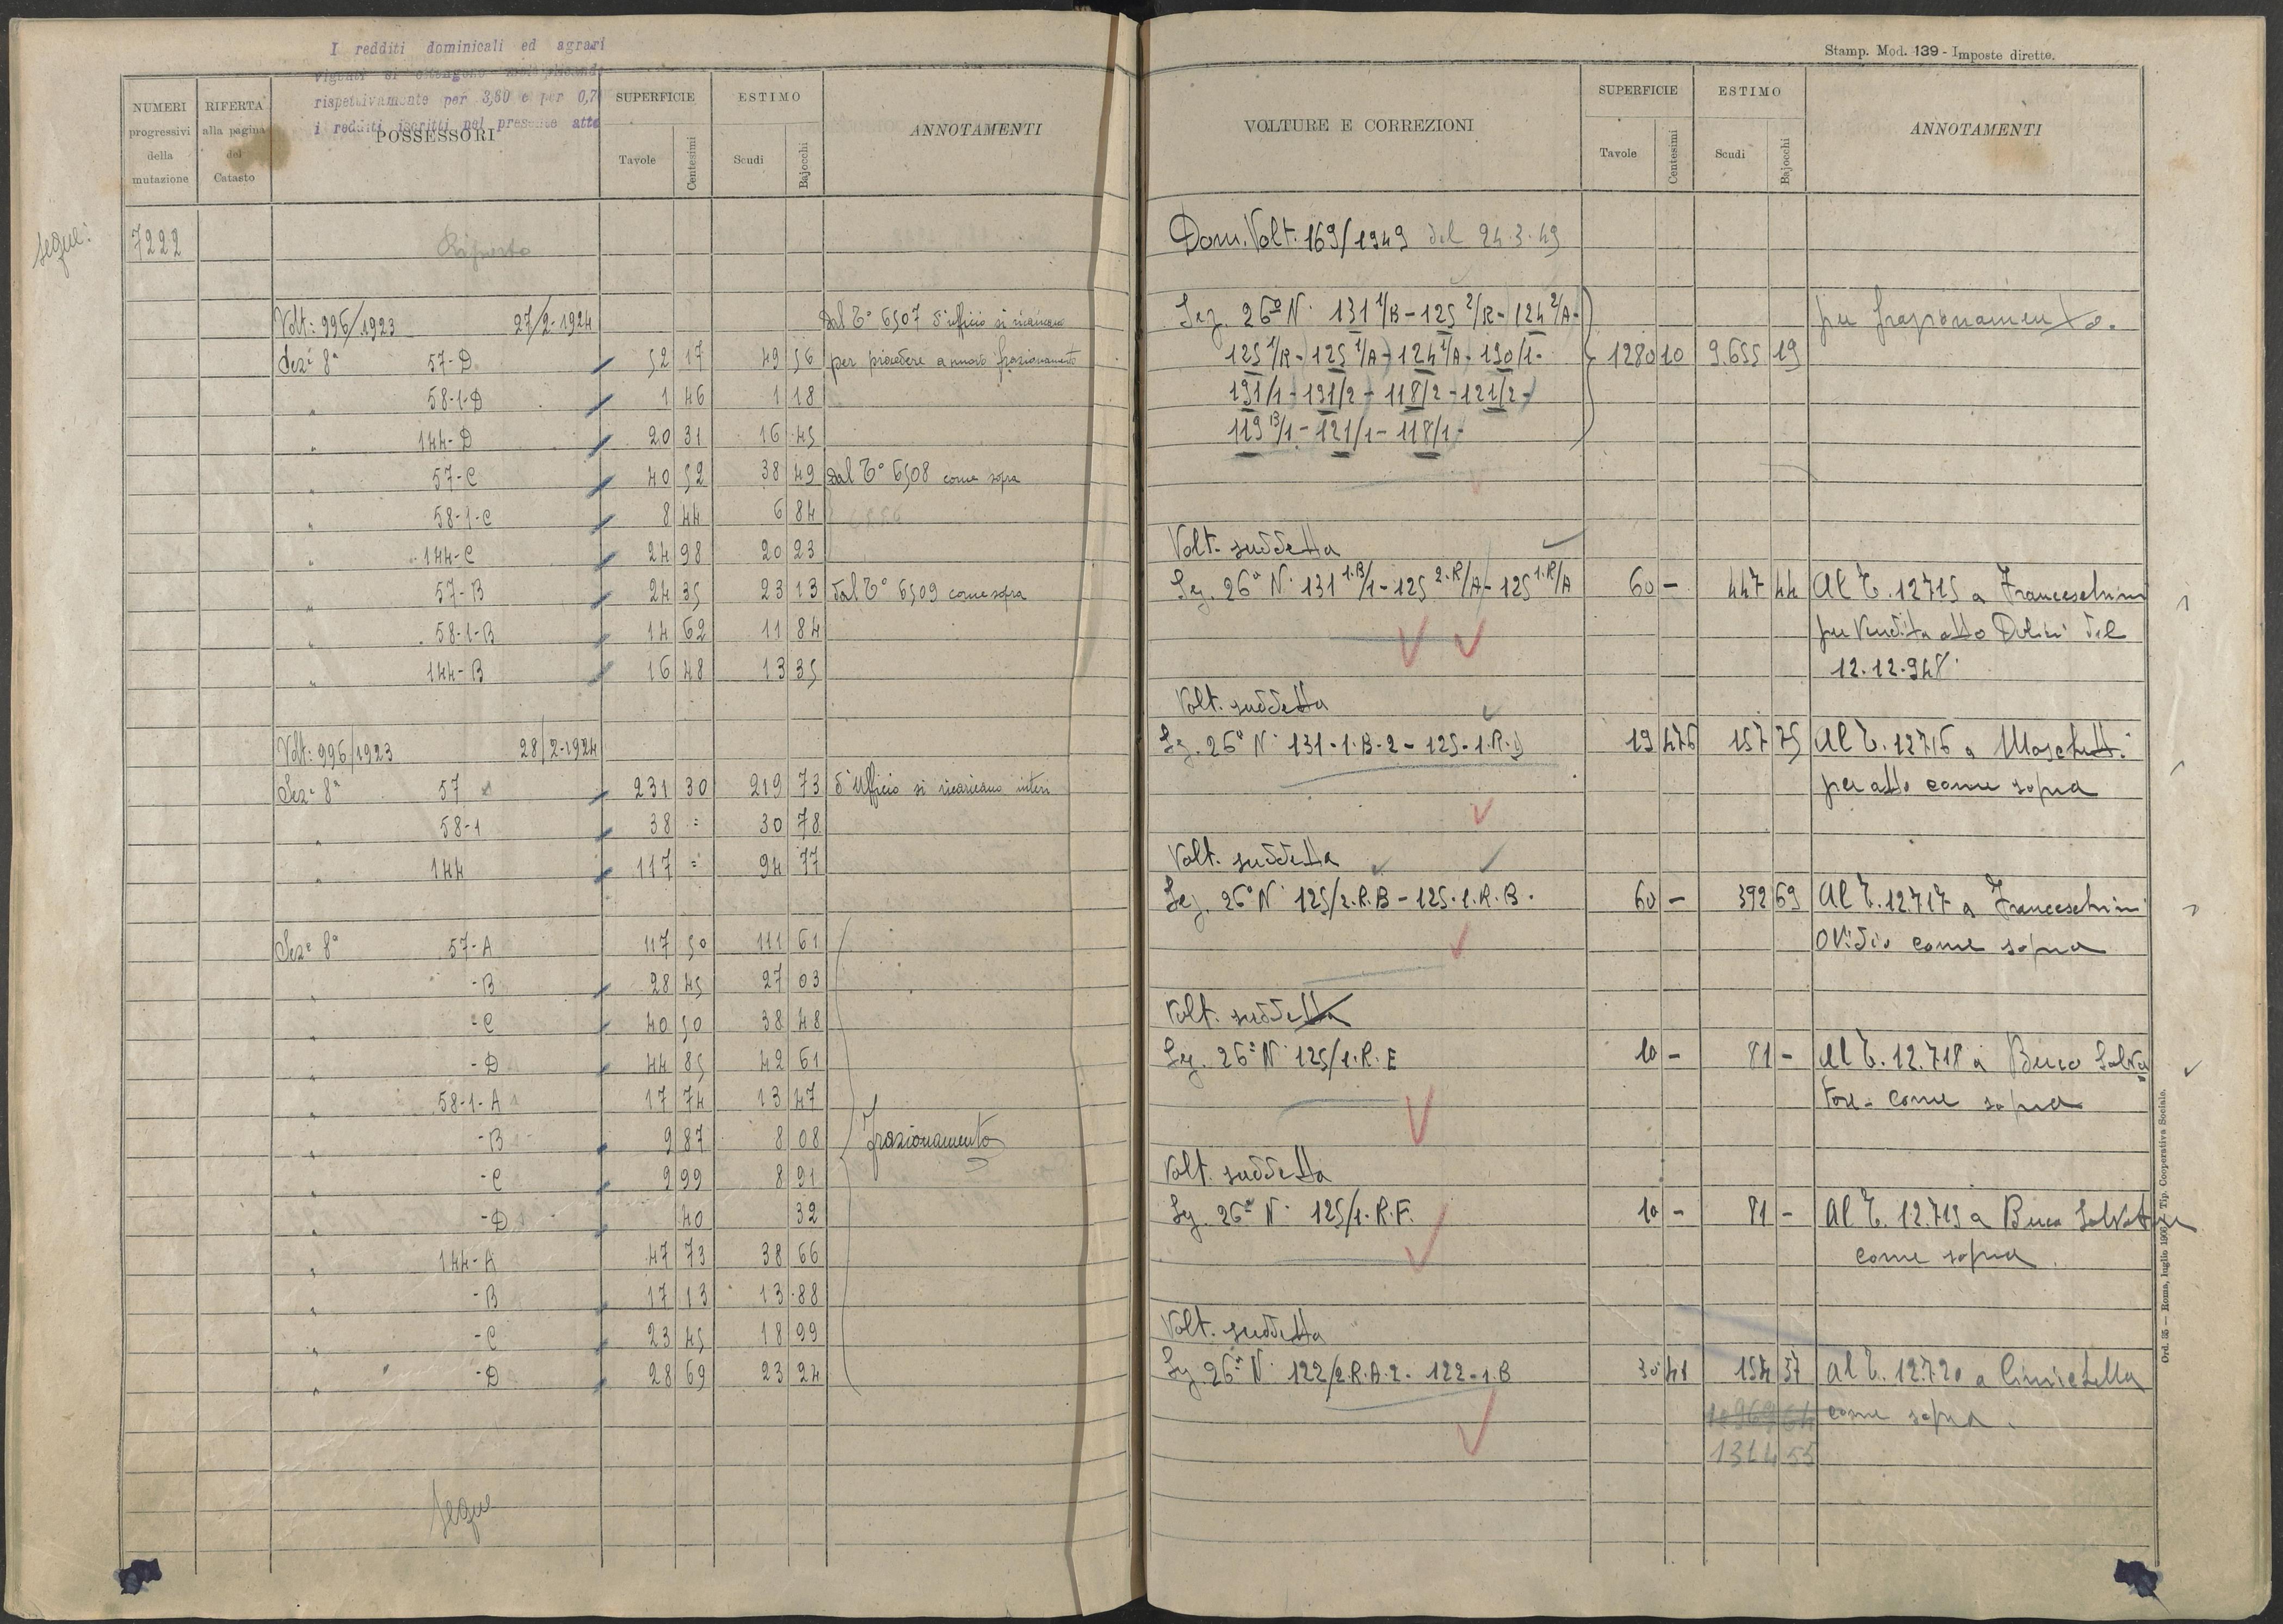 I redditi dominicali ed agrari
vigenti si ottengono moltiplicando
rispettivamente per 3,80 e per 0,7
i redditi iscritti nel presente atto
NUMERI progressivi della mutazione
RIFERTA alla pagina del Catasto
POSSESSORI
SUPERFICIE
Tavole Centesimi
ESTIMO
Scudi Bajocchi
ANNOTAMENTI
segue: 7222 Riporto
Volt: 996/1923 27/2-1924 Dal T° 6507 d'ufficio si ricaricano
Sez: 8ª 57-D 52 17 49 56 per procedere a nuovo frazionamento
" 58-1-D 1 46 1 18
" 144-D 20 31 16 45
" 57-C 40 52 38 49 Dal T° 6508 come sopra
" 58-1-C 8 44 6 84
" 144-C 24 98 20 23
" 57-B 24 35 23 13 dal T° 6509 come sopra
" 58-1-B 14 62 11 84
" 144-B 16 48 13 35
Volt: 996/1923 28/2-1924
Sez: 8ª 57 231 30 219 73 d'Ufficio si ricaricano interi
" 58-1 38 = 30 78
" 144 117 = 94 77
Sez: 8ª 57-A 117 50 111 61
" -B 28 45 27 03
" -C 40 50 38 48
" -D 44 85 42 61
" 58-1-A 17 74 13 47
" -B 9 87 8 08 frazionamento
" -C 9 99 8 91
" -D 40 32
" 144-A 47 73 38 66
" -B 17 13 13 88
" -C 23 45 18 99
" -D 28 69 23 24
Segue
Stamp. Mod. 139 - Imposte dirette.
VOLTURE E CORREZIONI
SUPERFICIE
Tavole Centesimi
ESTIMO
Scudi Bajocchi
ANNOTAMENTI
Dom. Volt. 169/1949 del 24.3.49
Sez. 26ª N. 131 1/B - 125 2/R - 124 2/A - per frazionamento.
125 1/R - 125 1/A - 124 1/A - 130/1 - 1280 10 9.655 19
131/1 - 131/2 - 118/2 - 121/2 -
119 B/1 - 121/1 - 118/1 -
Volt. suddetta
Sez. 26ª N. 131 1.B/1 - 125 2.R/A - 125 1.R/A 60 - 447 44 Al T. 12715 a Franceschini
per vendita atto del
12.12.948.
Volt. suddetta
Sez. 26ª N. 131-1.B-2 - 125-1.R. 19 476 157 75 Al T. 12716 a Moschetti
per atto come sopra
Volt. suddetta
Sez. 26ª N. 125/2.R.B - 125.1.R.B. 60 - 392 69 Al T. 12.717 a Franceschini
Ovidio come sopra
Volt. suddetta
Sez. 26ª N. 125/1.R.E 10 - 81 - Al T. 12.718 a Buco Salva
tore - come sopra
Volt. suddetta
Sez. 26ª N. 125/1.R.F. 10 - 81 - Al T. 12.719 a Buco Salvatore
come sopra
Volt. suddetta
Sez. 26ª N. 122/2.R.A.2 - 122-1.B 30 41 154 37 Al T. 12.720 a
10969 64 come sopra.
1314 55
Ord. 35 — Roma, luglio 1906 — Tip. Cooperativa Sociale.